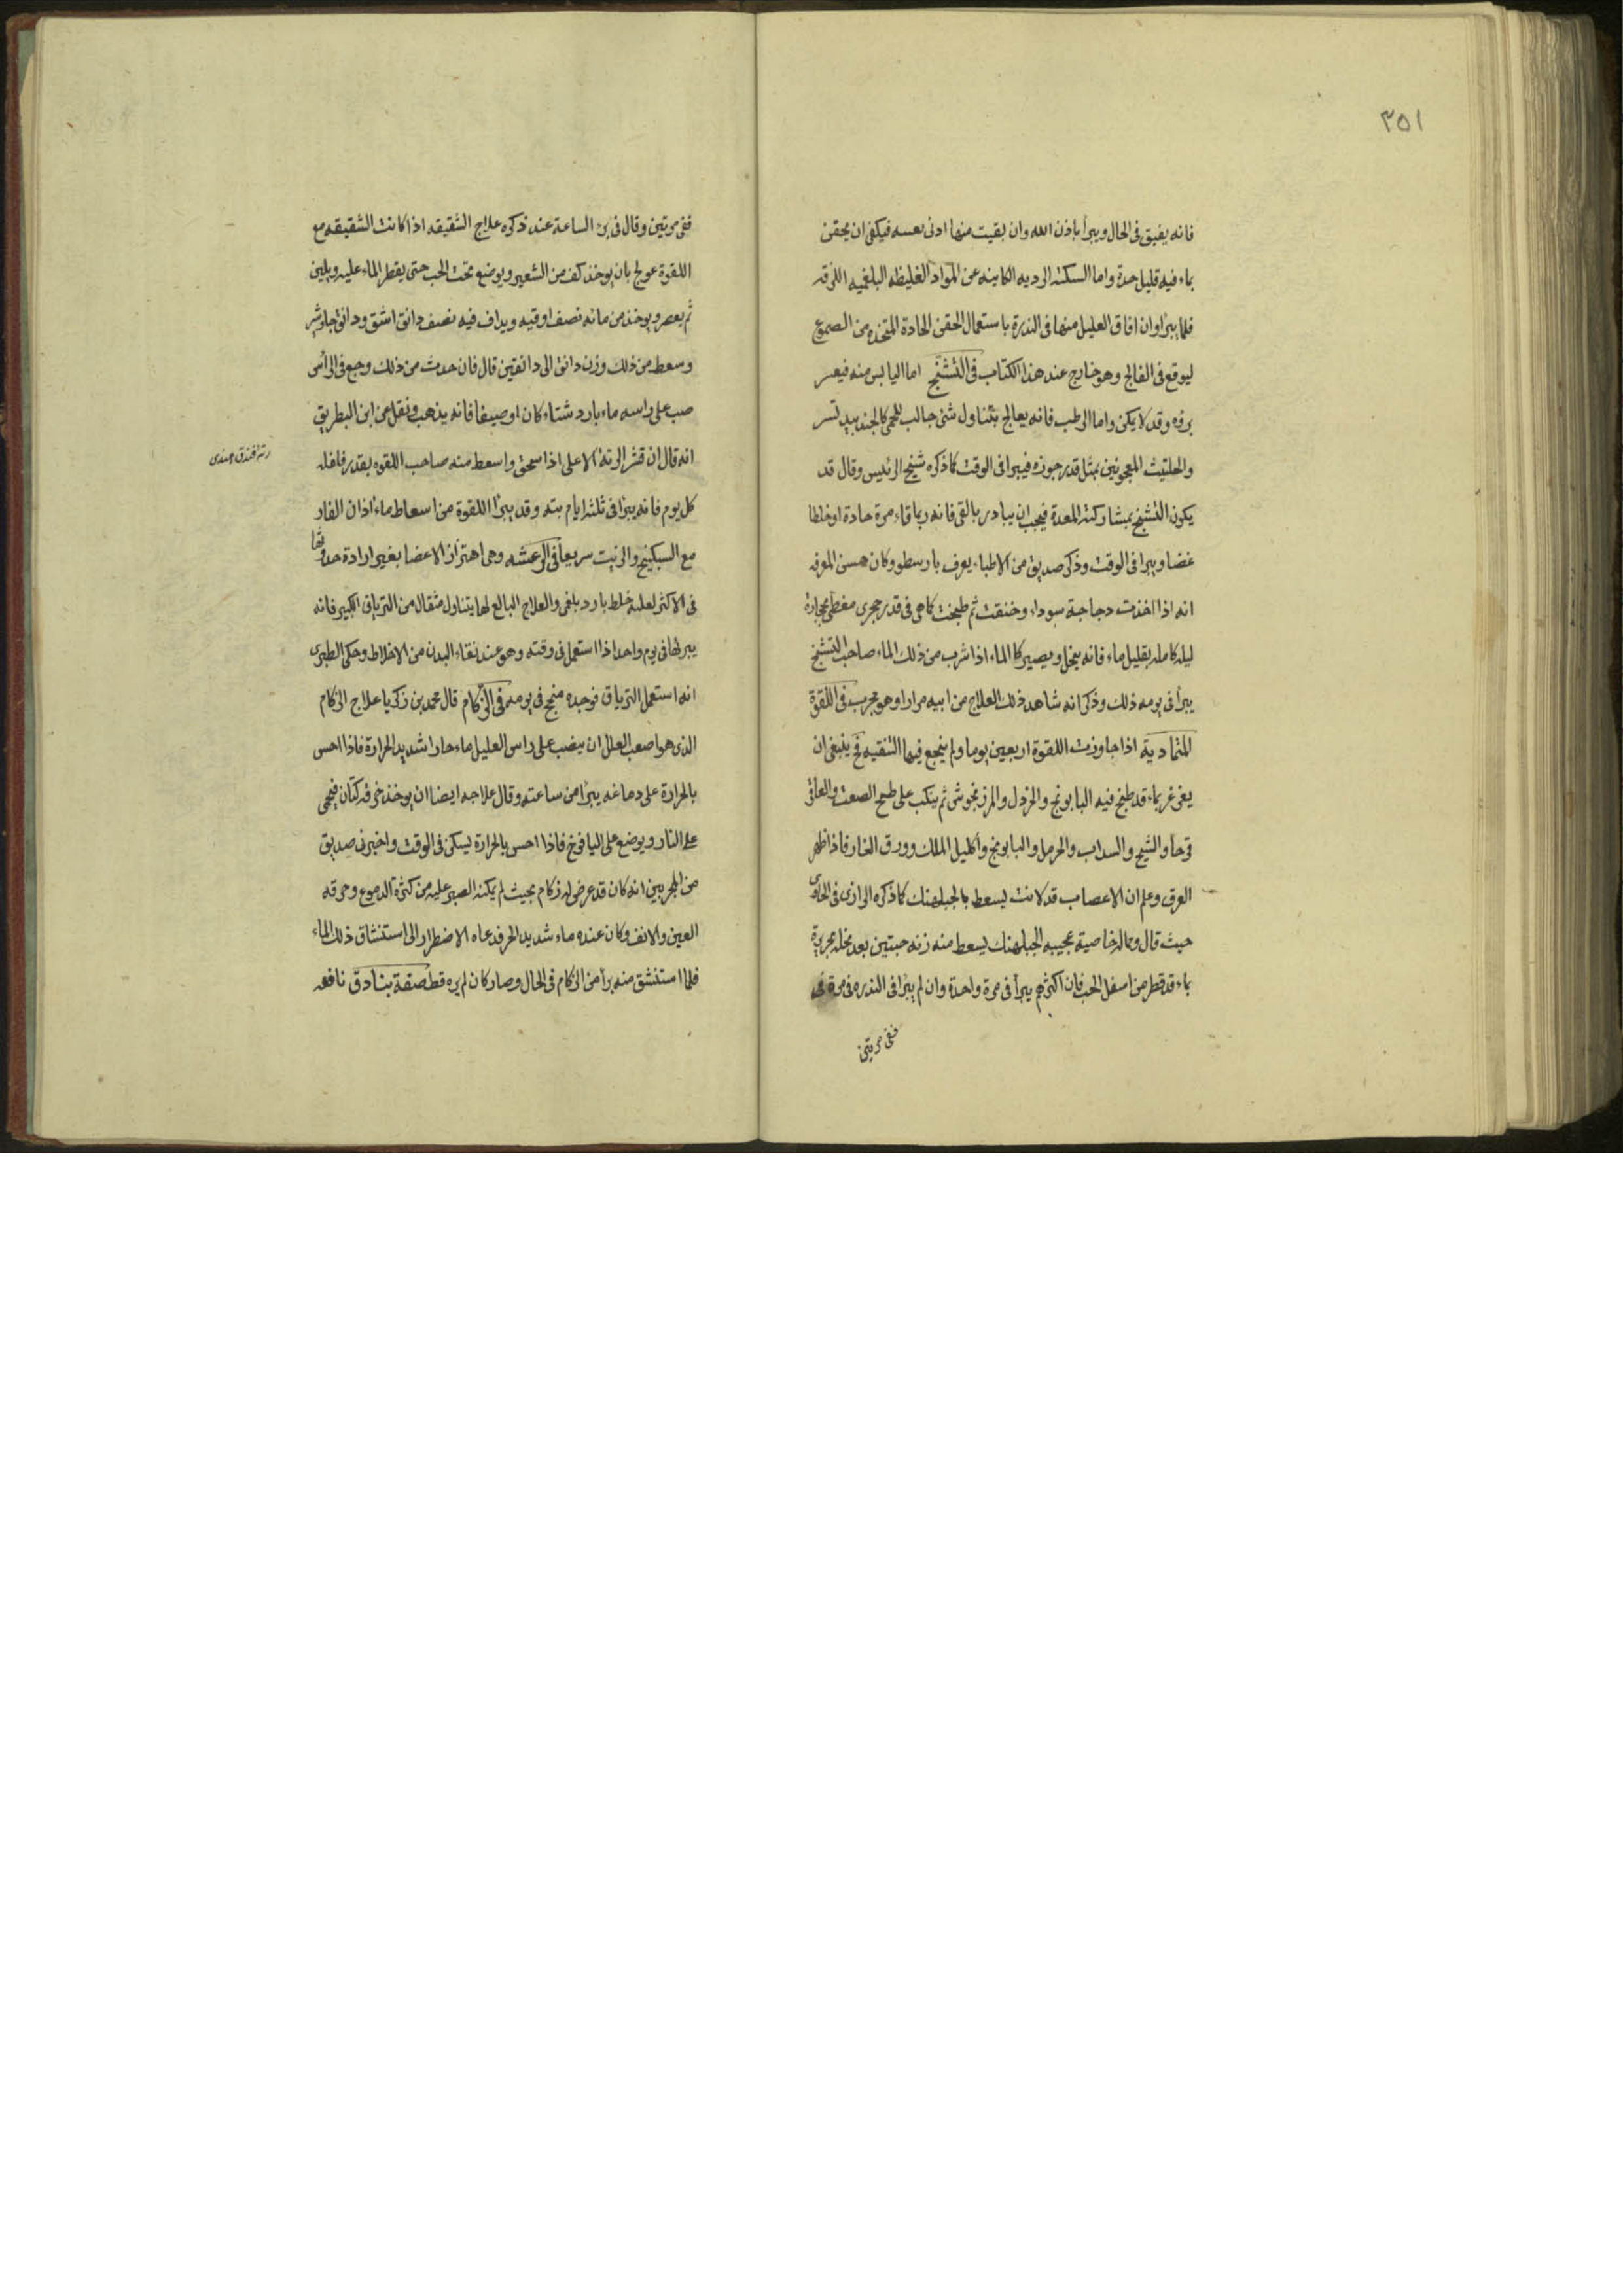 ٣٥١
فانه يفيق فى الحال ويبرأ باذن الله وان بقيت منها ادنى فيكفى ان يحقن
بماء فيه قليل حدة واما السكتة الرديه الكاينه عن المواد الغليظه البلغميه اللزقه
فلما يبرأ وان افاق العليل منها فى الندرة باستعمال الحقن الحادة المتخذه من الصموغ
ليوقع فى الفالج وهو خارج عند هذا الكتاب فى التشنج اما اليابس منه فيعسر
برؤه وقد لا يمكن واما الرطب فانه يعالج بتناول شئ جالب للحمى كالجندبيدستر
والحلتيث المعجونين بمثل قدر جوزه فيبرا فى الوقت كما ذكره شيخ الرئيس وقال قد
يكون التشنج بمشاركة المعدة فيجب ان يبادر بالقى فانه ربما قاء مرة حادة او خلطا
عفنا ويبرا فى الوقت وذكر صديق من الاطباء يعرف بارسطو وكان حسن المعرفه
انه اذا اخذت دجاجة سوداء وخنقت ثم طبخت كما هى فى قدر حجرى مغطى بحجارة
ليله كامله بقليل ماء فانه ينحل ويصير كا الماء اذا شرب من ذلك الماء صاحب التشنج
يبرأ فى يومه ذلك وذكر انه شاهد ذلك العلاج من ابيه مرارا وهو مجرب فى اللقوة
المتمادية اذا جاوزت اللقوة اربعين يوما ولم ينجع فيها التنقيه فح ينبغى ان
يغرغر بماء قد طبخ فيه البابونج والخردل والمرزنجوش ثم ينكب على طبيخ الصعتر والعاقر
قرحا والشيح والسداب والحرمل والبابونج واكليل الملك وورق الغار فاذا ظهر
العرق وعلم ان الاعصاب قد لانت ليسعط بالجبلهنك كما ذكره الرازى فى الحاوى
حيث قال ومما له خاصية عجيبه الجبلهنك يسعط منه زنه حبتين بعد نخله بحريرة
بماء قد قطر من اسفل الحب فان اكثرهم يبرأ فى مرة واحدة وان لم يبرا فى الندره فى مرة
ففى مرتين
ففى مرتين وقال فى برء الساعة عند ذكره علاج الشقيقه اذا كانت الشقيقه مع
اللقوة عولج بان يوخذ كف من الشعير ويوضع تحت الحب حتى يقطر الماء عليه ويلين
ثم يعصر ويوخذ من مائه نصف اوقيه ويداف فيه نصف دانق اشق ودانق جاوشير
وسعط من ذلك وزن دانق الى دانقين قال فان حدث من ذلك وجع فى الراس
صب على راسه ماء بارد شتاء كان او صيفا فانه يذهب ونقل عن ابن البطريق
انه قال ان قشر الرتة الاعلى اذا سحق واسعط منه صاحب اللقوه بقدر فلفله
رته فندق هندى
كل يوم فانه يبرا فى ثلثه ايام بته وقد يبرا اللقوة من اسعاط ماء اذان الفار
مع السبكينج والزيت سريعا فى الرعشه وهى اهتزاز الاعضا بغير ارادة حدوثها
فى الاكثر لعلة خلط بارد بلغمى والعلاج البالغ لها يتناول مثقال من الترياق الكبير فانه
يبرئها فى يوم واحد اذا استعمل فى وقته وهو عند نقاء البدن من الاخلاط وحكى الطبرى
انه استعمل الترياق فوجده منجح فى يومه فى الزكام قال محمد بن زكريا علاج الزكام
الذى هو اصعب العلل ان يصب على راس العليل ماء حارا شديد الحرارة فاذا احس
بالحرارة على دماغه يبرأ من ساعته وقال علاجه ايضا ان يوخذ خرقه كتان فيحمى
على النار ويوضع على اليافوخ فاذا احس بالحرارة يسكن فى الوقت واخبرنى صديق
من المجربين انه كان قد عرض له زكام بحيث لم يمكنه الصبر عليه من كثرة الدموع وحرقه
العين والانف وكان عنده ماء شديد الحر فدعاه الاضطرار الى استنشاق ذلك الماء
فلما استنشق منه برأ من الزكام فى الحال وصار كان لم يره قط صفة بنادق نافعه